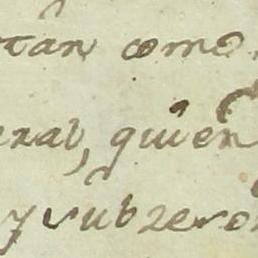 tân como
eral, quien
y subzero